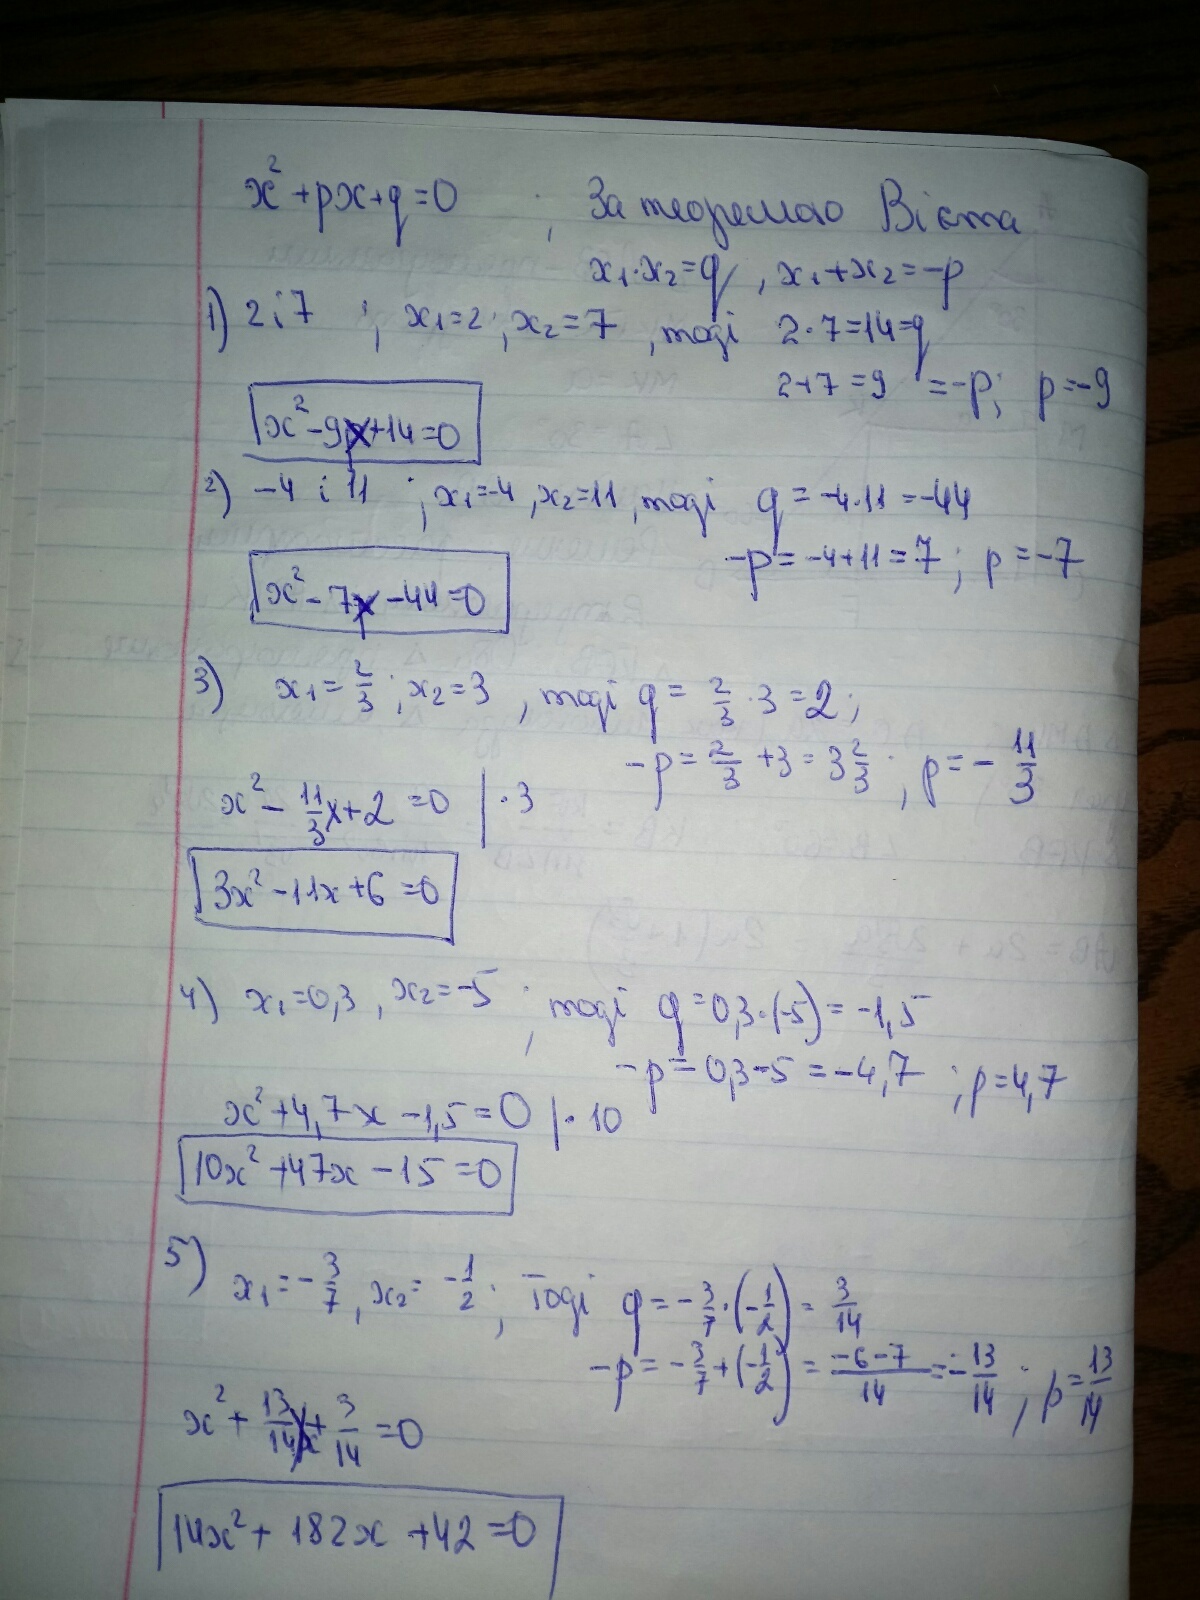 x²+px+q=0 ; За теоремою Вієта
x₁·x₂=q, x₁+x₂=-p
1) 2 і 7 ; x₁=2; x₂=7, тоді 2·7=14=q
2+7=9 =-p; p=-9
x²-9x+14=0
2) -4 і 11 ; x₁=-4, x₂=11, тоді q=-4·11=-44
-p=-4+11=7; p=-7
x²-7x-44=0
3) x₁=2/3; x₂=3, тоді q=2/3·3=2;
-p=2/3+3=3 2/3; p=-11/3
x²-11/3x+2=0 |·3
3x²-11x+6=0
4) x₁=0,3, x₂=-5; тоді q=0,3·(-5)=-1,5
-p=0,3-5=-4,7; p=4,7
x²+4,7x-1,5=0 |·10
10x²+47x-15=0
5) x₁=-3/7, x₂=-1/2; Тоді q=-3/7·(-1/2)=3/14
-p=-3/7+(-1/2)=(-6-7)/14=-13/14; p=13/14
x²+13/14x+3/14=0
14x²+182x+42=0